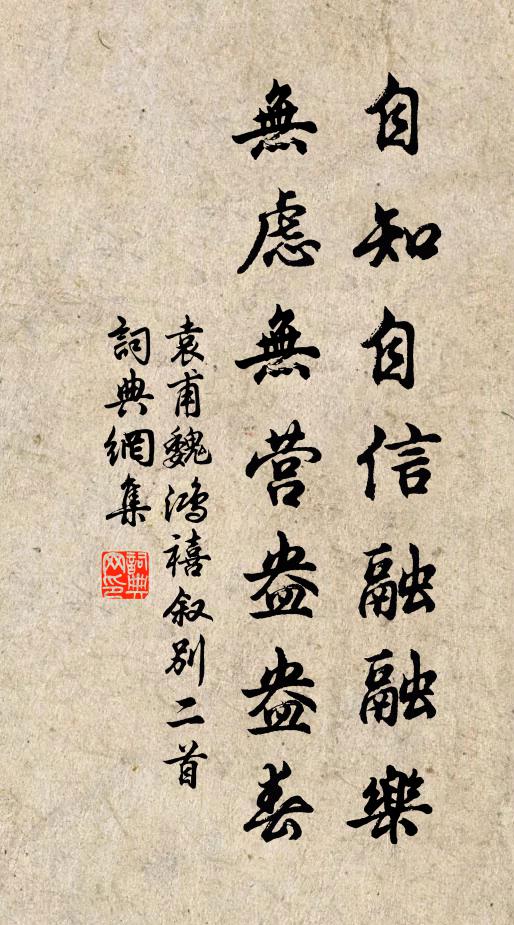 自知自信融融樂
無慮無营盎盎春
袁甫魏鴻禧叙別二首
詞典網集
詞典網印